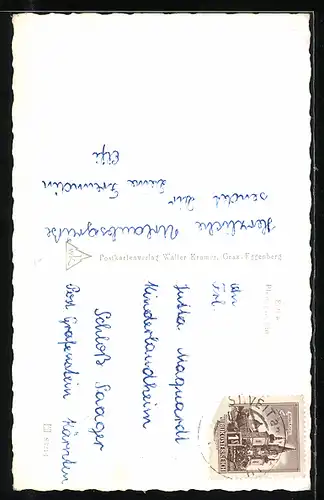 Herzliche Urlaubsgrüße
sendet Dir
Deine Freundin
Elfi
Postkartenverlag Walter Kramer, Graz-Eggenberg
An
Frl.
Jutta Maquardt
Kinderlandheim
Schloß Saager
Post Grafenstein Kärnten
ST. VEIT
REPUBLIK ÖSTERREICH